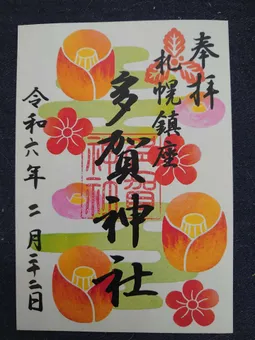 奉拝
札幌鎮座
多賀神社
令和六年 二月二十二日